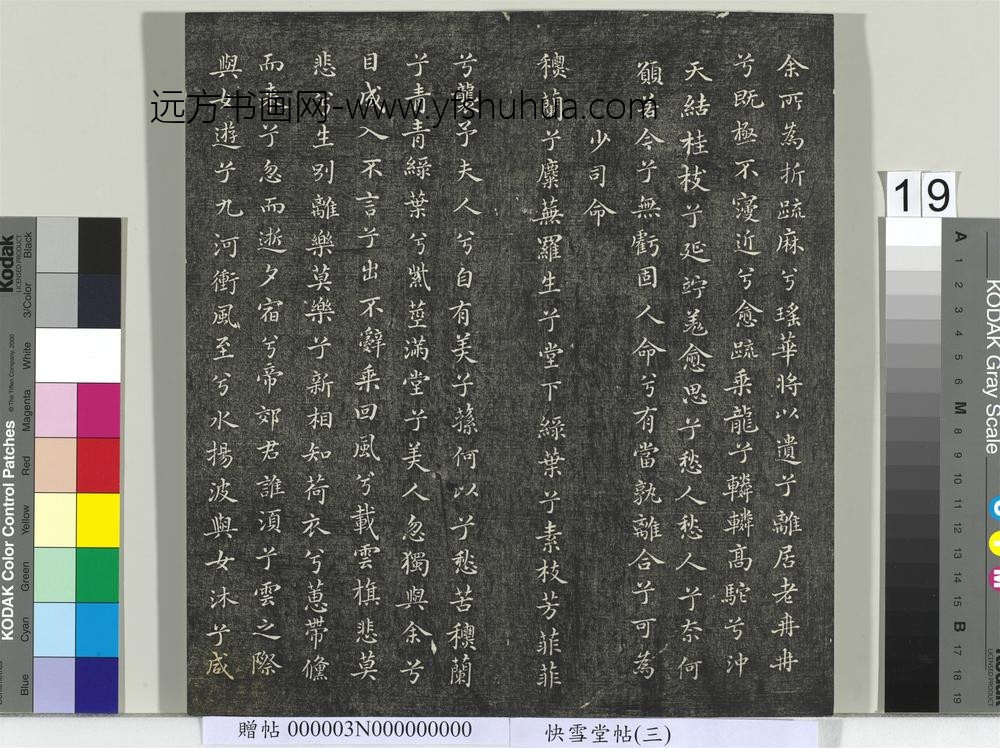 余所為折疏麻兮瑤華將以遺兮離居老冉冉
兮既極不寖近兮愈疏乘龍兮轔轔高駝兮沖
天結桂枝兮延竚羌愈思兮愁人愁人兮奈何
願若今兮無虧固人命兮有當孰離合兮可為
少司命
穮蘭兮麋蕪羅生兮堂下綠葉兮素枝芳菲菲
兮襲予夫人兮自有美子蓀何以兮愁苦穮蘭
兮青青綠葉兮紫莖滿堂兮美人忽獨與余兮
目成入不言兮出不辭乘回風兮載雲旗悲莫
悲兮生別離樂莫樂兮新相知荷衣兮蕙帶儵
而來兮忽而逝夕宿兮帝郊君誰須兮雲之際
與女遊兮九河衝風至兮水揚波與女沐兮咸
远方书画网-www.yfshuhua.com
19
Kodak
LICENSED PRODUCT
© The Tiffen Company, 2000
KODAK Color Control Patches
Blue Cyan Green Yellow Red Magenta White 3/Color Black
KODAK Gray Scale
A 1 2 3 4 5 6 M 8 9 10 11 12 13 14 15 B 17 18 19
贈帖 000003N000000000
快雪堂帖(三)